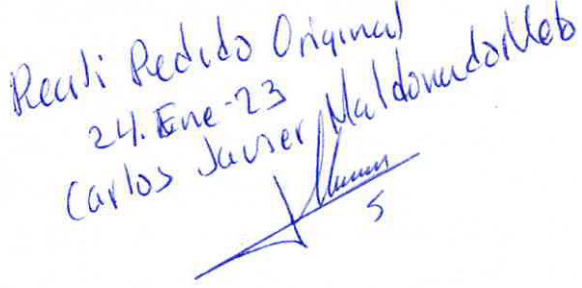 Recibi Pedido Original
24. Ene-23
Carlos Javier Maldonado